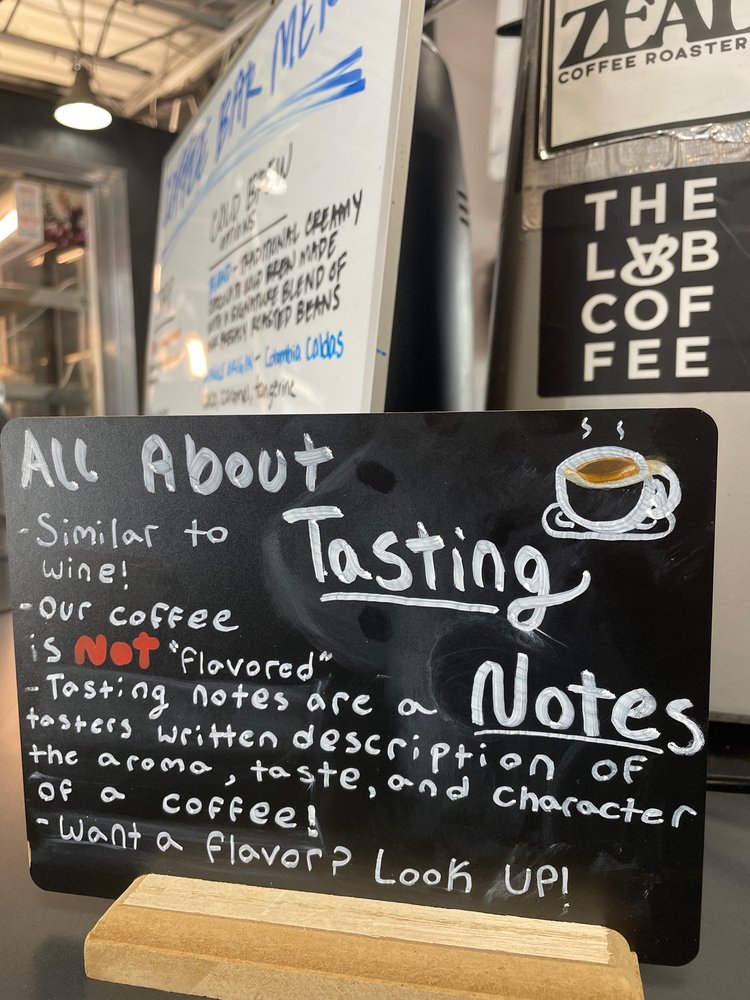 ZEAL
COFFEE ROASTER
THE
LAB
COF
FEE
BAR MEN
COLD BREW
OPTIONS
BLEND - TRADITIONAL CREAMY
COLD BREW MADE
WITH A SIGNATURE BLEND OF
FRESHLY ROASTED BEANS
ORIGIN - Colombia Caldas
caramel, tangerine
All About
Tasting
Notes
- Similar to
wine!
- Our coffee
is NOT "flavored"
- Tasting notes are a
tasters written description of
the aroma, taste, and character
of a coffee!
- Want a flavor? Look UP!